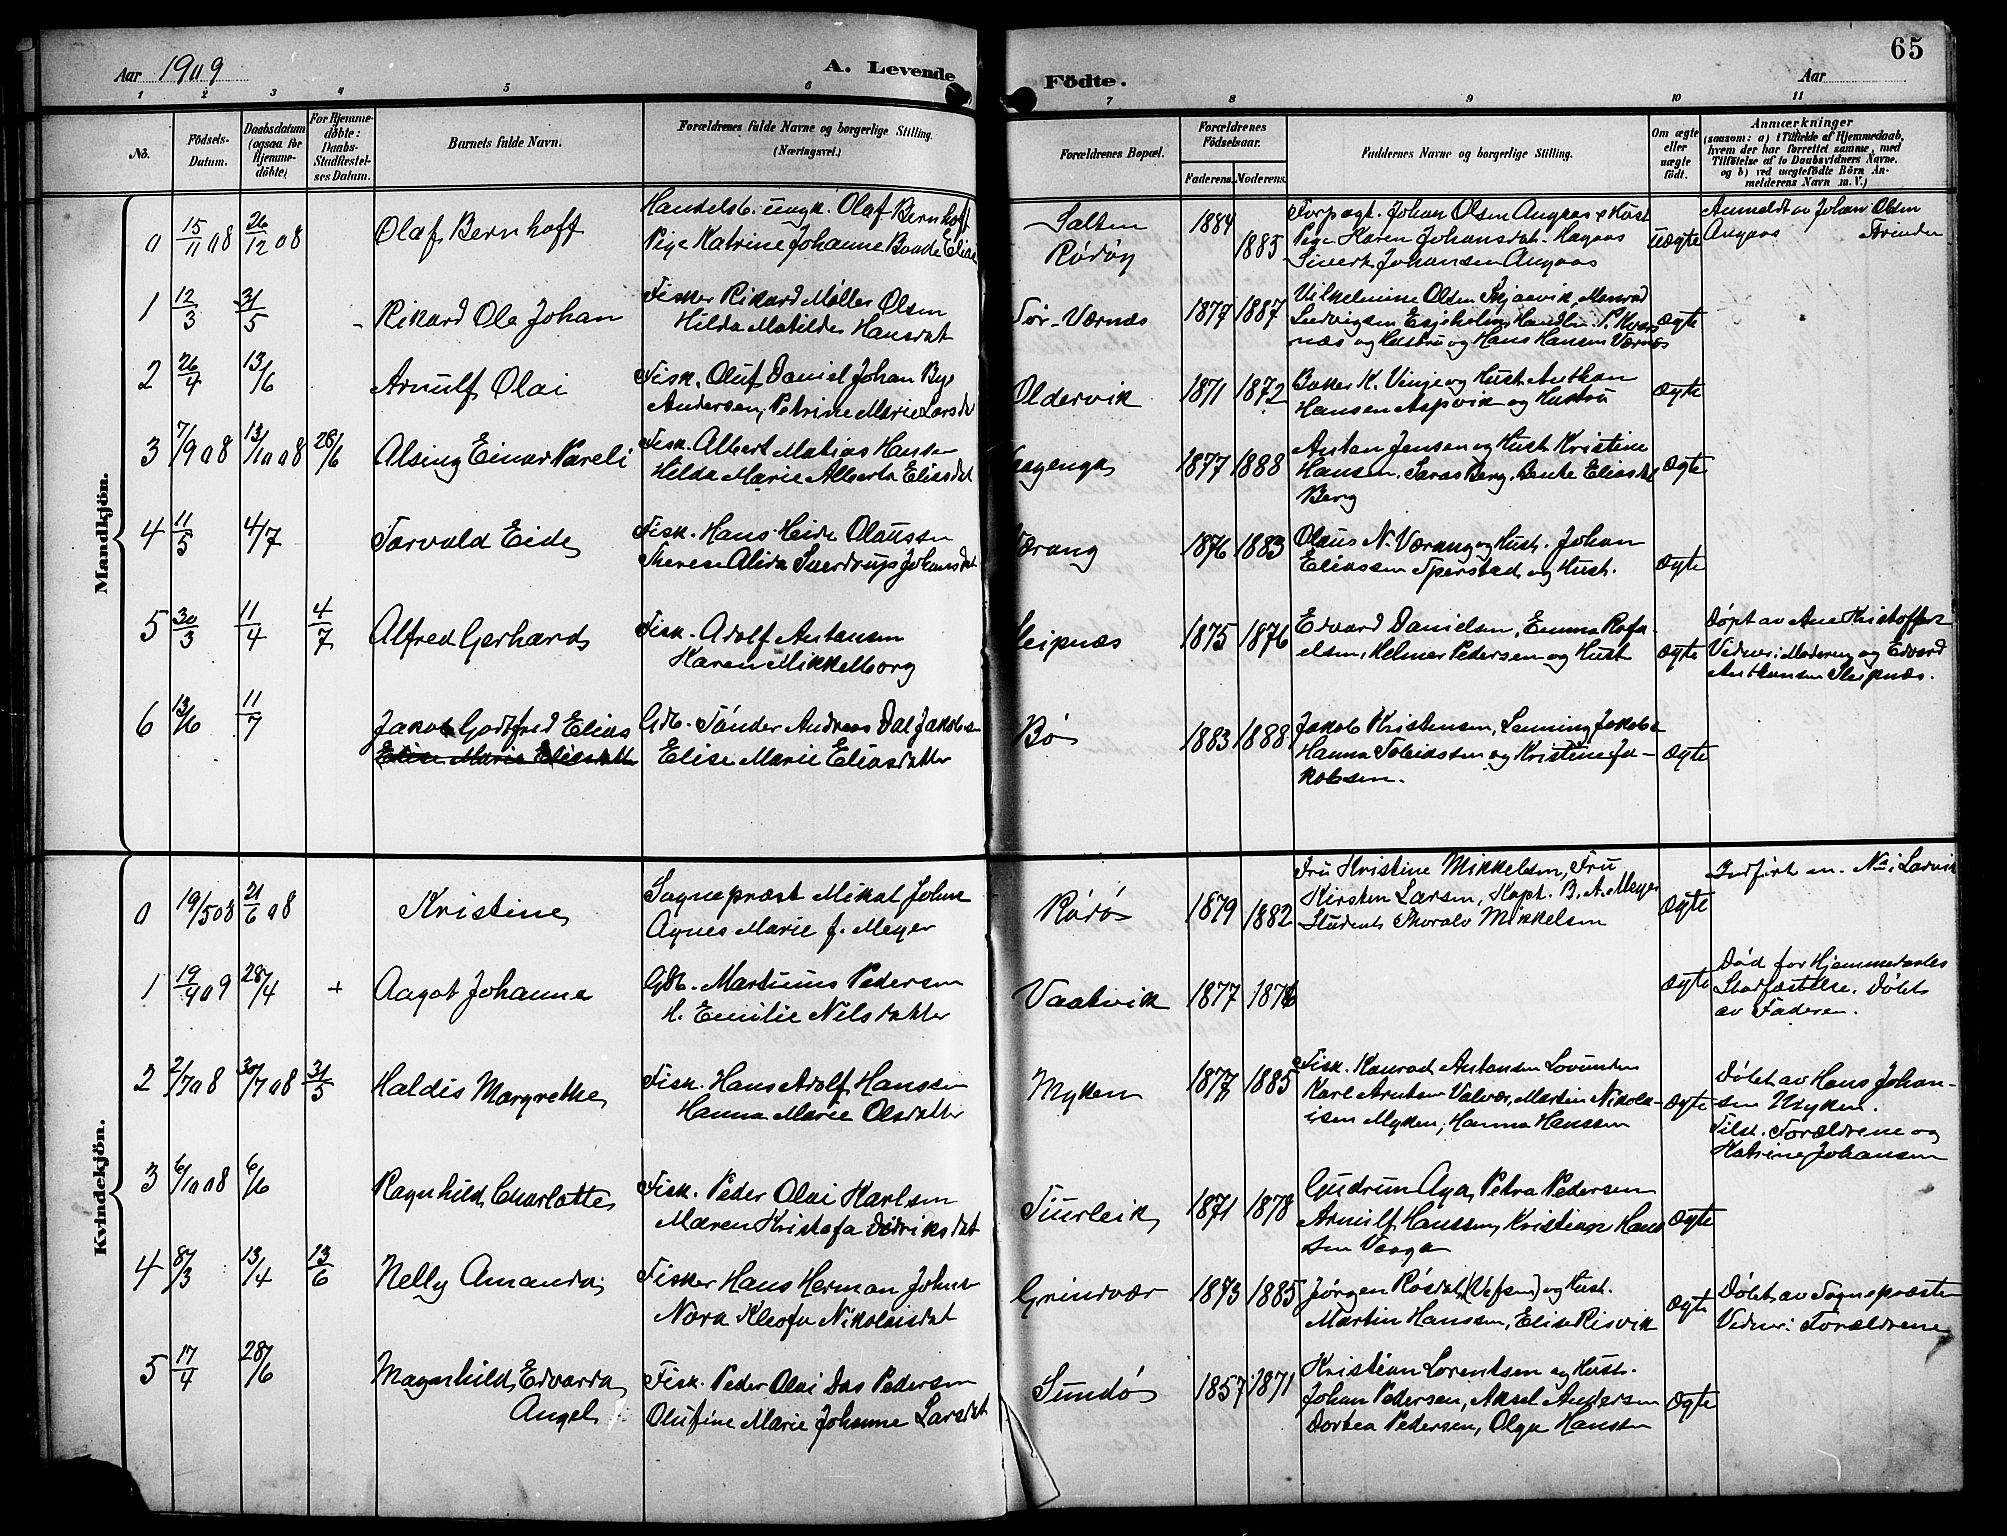 65
Aar 1909 A. Levende Födte. Aar
1 2 3 4 5 6 7 8 9 10 11
No.
Födsels-Datum.
Daabsdatum (ogsaa for Hjemmedöbte)
For Hjemmedöbte: Daabs-Stadfæstelses Datum.
Barnets fulde Navn.
Forældrenes fulde Navne og borgerlige Stilling. (Næringsvei.)
Forældrenes Bopæl.
Forældrenes Födselsaar.
Faderens. Moderens.
Faddernes Navne og borgerlige Stilling.
Om ægte eller uægte födt.
Anmærkninger
(saasom: a) i Tilfælde af Hjemmedaab, hvem der har forrettet samme, med Tilföielse af to Daabsvidners Navne. og b) ved uægtefödte Börn Anmelderens Navn m. V.)
Mandkjön.
0 15/11 08 26/12 08 Olaf Bernhoft
Handelsb. ungk. Olaf Bernhoft
Pige Katrine Johanne Elise
Salten
Rödöy
1884 1885
Forpagt. Johan Olsen Angaas & Hust
Pige Karen Johansdat.
Sivert Johansen Angaas
Uægte
Anmeldt av Johan Olsen
Angaas
1 12/3 31/5 Rikard Ole Johan
Fisker Rikard Möller Olsen
Hilda Matilde Hansdat
Tor-Værnæs 1877 1887
Vilhelmine Olsen Skjaavik, Monrad
Ludvigsen
næs og Hustru og Hans Hansen Værnæs
Ægte
2 26/4 13/6 Arnulf Olai
Fisk. Oluf Daniel Johan Bye
Andersen, Petrine Marie Larsdat
Oldervik 1871 1872
Baker K. Vinje og Hust. Anthon
Hansen Aspvik og Hustru
Ægte
3 7/9 08 13/10 08 28/6 Alsing Einar Pareli
Fisk. Albert Matias Hansen
Hilda Marie Alberta Eliasdat
1877 1888
Anton Jensen og Hust. Kristine
Hansen, Saras Berg, Bente Eliasdat
Berg
Ægte
4 11/5 4/7 Torvald Eide
Fisk. Hans Heide Olaussen
Therese Alida Sverdrup Johansdat
Værang 1876 1883
Olaus N. Værang og Hust. Johan
Eliassen Sperstad og Hust.
Ægte
5 30/3 11/4 4/7 Alfred Gerhard
Fisk. Adolf Antonsen
Karen Mikkelborg
Sleipnæs 1875 1876
Edvard Danielsen, Emma Rafa-
elsen, Helmer Pedersen og Hust
Ægte
Døpt av Ane Kristoffers
Vidner: Moderen og Edvard
Anthonsen Sleipnæs.
6 13/6 11/7 Jakob Godtfred Elias
Elise Marie Eliasdatter
Gdb. Tønder Andreas Dal Jakobsen
Elise Marie Eliasdatter
Bø 1883 1888
Jakob Kristensen, Lenning Jakobs
Hanna Tobiassen og Kristine Ja-
kobsen.
Ægte
Kvindekjön.
0 19/5 08 21/6 08 Kristine
Sognepræst Mikal Johns
Agnes Marie f. Meyer
Rödö 1879 1882
Fru Kristine Mikkelsen, Fru
Kirsten Larsen, Kapt. B. A. Meyer
Student Thoralv Mikkelsen
Ægte
Indført m. No i Larvik
1 19/4 09 28/4 + Aagot Johanne
Gdb. Martinus Pedersen
H. Emilie Nilsdatter
Vaatvik 1877 1876
Ægte
Død før Hjemmedaabs
Stadfæstelse. Døbt
av Faderen.
2 2/7 08 30/7 08 31/5 Haldis Margrethe
Fisk. Hans Adolf Hanssen
Hanna Marie Olsdatter
Myken 1877 1885
Fisk. Konrad Antonsen Lovunden
Karl Arntsen Valvær, Martin Nikola-
isen Myken, Hanna Hanssen
Ægte
Døbt av Hans Johan-
sen Myken.
Tilst. Forældrene og
Katrine Johansen
3 6/10 08 6/6 Ragnhild Charlotte
Fisk. Peder Olai Karlsen
Maren Kristofa Didriksdat
1871 1878
Gudrun Aga, Petra Pedersen
Arnulf Hanssen, Kristian Hans
sen Vaaga
Ægte
4 8/3 13/4 13/6 Nelly Amanda
Fisker Hans Herman Johns
Nora Kleofa Nikolaisdat
Grindvær 1873 1885
Jørgen Røsdal (Vefsen) og Hust.
Martin Hanssen, Elise Risvik
Ægte
Døbt av Sognepræsten
Vidner: Forældrene
5 17/4 28/6 Magnhild Edvarda
Angel
Fisk. Peder Olai Das Pedersen
Olufine Marie Johanne Larsdat
Sundö 1857 1871
Kristian Lorentsen og Hust.
Johan Pedersen, Aksel Andersen
Dortea Pedersen, Olga Hansen
Ægte